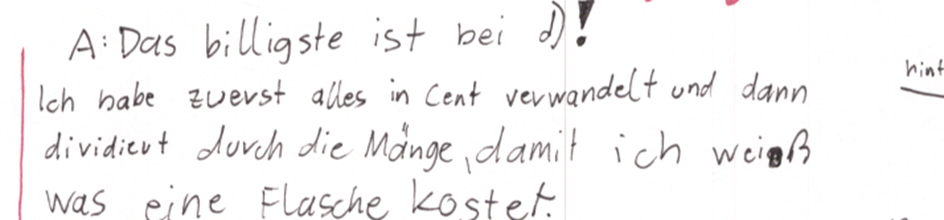 A: Das billigste ist bei d)!
Ich habe zuerst alles in Cent verwandelt und dann
dividiert durch die Mänge, damit ich weiß
was eine Flasche kostet.
hint